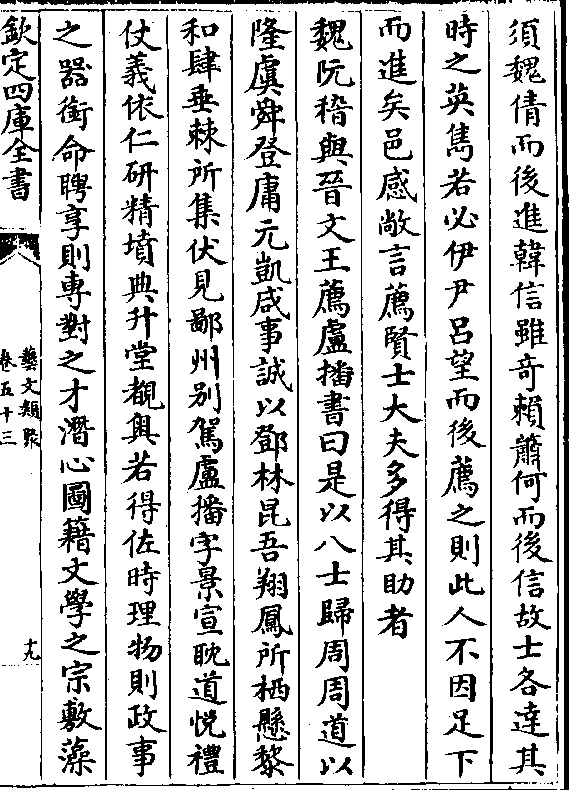 須魏倩而後進韓信雖奇賴蕭何而後信故士各達其
時之英雋若必伊尹呂望而後薦之則此人不因足下
而進矣邑感敞言薦賢士大夫多得其助者
魏阮籍與晉文王薦盧播書曰是以八士歸周周道以
隆虞舜登庸元凱咸事誠以鄧林昆吾翔鳳所栖懸黎
和肆垂棘所集伏見鄙州别駕盧播字景宣耽道悦禮
仗義依仁研精墳典升堂覩奥若得佐時理物則政事
之器銜命聘享則專對之才潛心圖籍文學之宗敷藻
欽定四庫全書
藝文類聚
卷五十三
十九